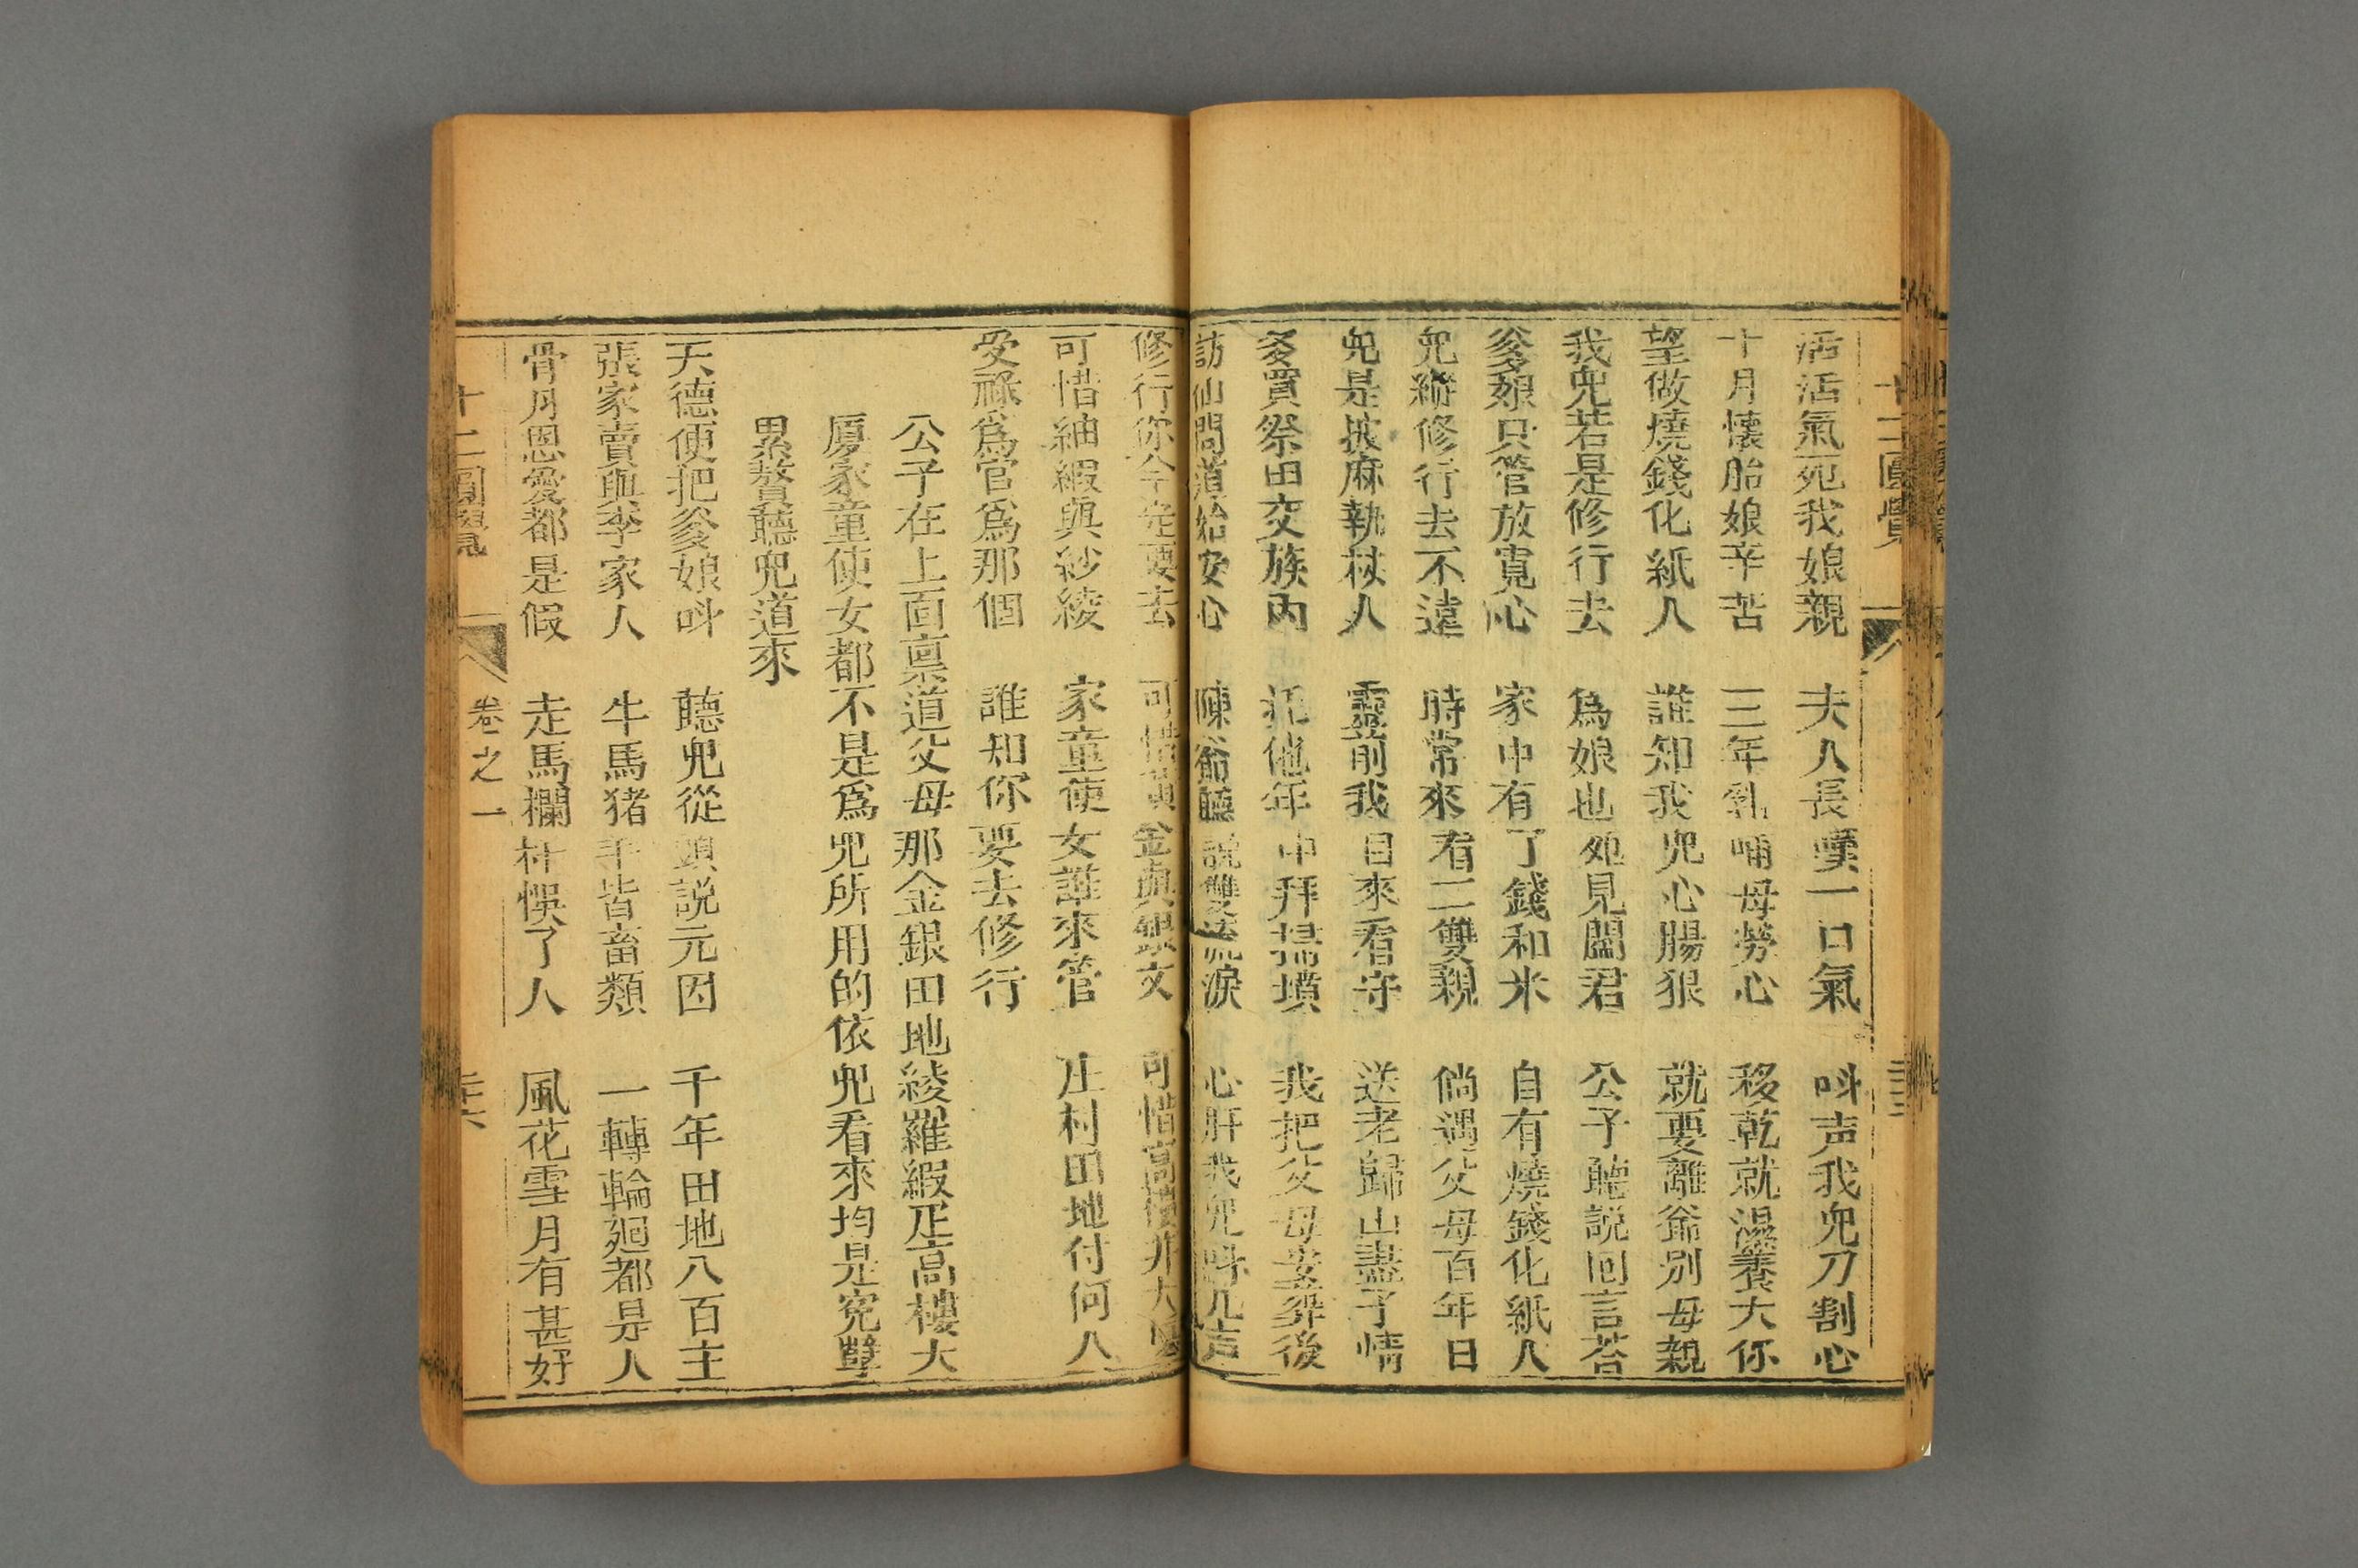 十二圓覺
活活氣死我娘親　夫人長嘆一口氣　呌声我兒刀割心
十月懷胎娘辛苦　三年乳哺母勞心　移乾就濕養大你
望做燒錢化紙人　誰知我兒心腸狠　就要離爺別母親
我兒若是修行去　爲娘也死見閻君　公子聽説回言荅
爹娘只管放寬心　家中有了錢和米　自有燒錢化紙人
兒縱修行去不遠　時常來看二雙親　倘遇父母百年日
兒是披麻執杖人　靈前我自來看守　送老歸山盡了情
多買祭田交族內　托他年中拜掃墳　我把父母安葬後
訪仙問道始安心　陳爺聽説雙流淚　心肝我兒呌几声
修行你今定要去　可惜黄金與銀文　可惜高樓并大
可惜紬緞與紗綾　家童使女誰來管　庄村田地付何人
受祿爲官爲那個　誰知你要去修行
公子在上面稟道父母那金銀田地綾羅緞疋高樓大
厦家童使女都不是爲兒所用的依兒看來均是寃孽
累贅聽兒道來
天德便把爹娘呌　聽兒從頭説元因　千年田地八百主
張家賣與李家人　牛馬猪羊皆畜類　一轉輪廻都是人
骨肉恩愛都是假　走馬欄杆悞了人　風花雪月有甚好
十二圓覺　卷之一